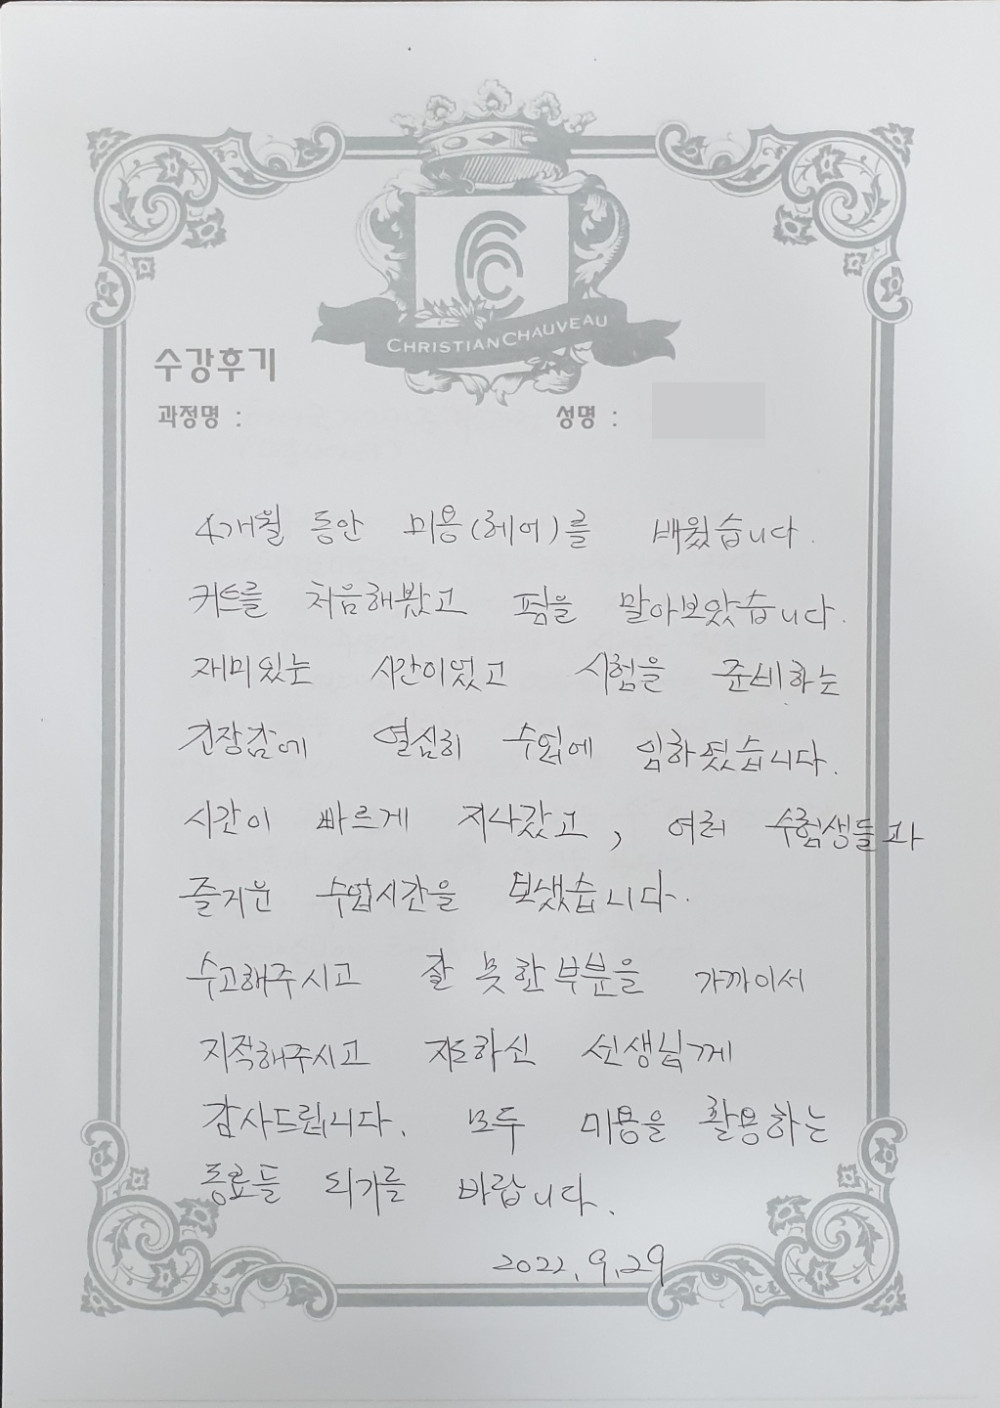 CHRISTIAN CHAUVEAU
수강후기
과정명 : 성명 :
4개월 동안 미용(헤어)를 배웠습니다.
커트를 처음해봤고 펌을 말아보았습니다.
재미있는 시간이었고 시험을 준비하는
긴장감에 열심히 수업에 임하였습니다.
시간이 빠르게 지나갔고, 여러 수험생들과
즐거운 수업시간을 보냈습니다.
수고해주시고 잘 못한부분을 가까이서
지적해주시고 지도하신 선생님께
감사드립니다. 모두 미용을 활용하는
동료들 되기를 바랍니다.
2022.9.29